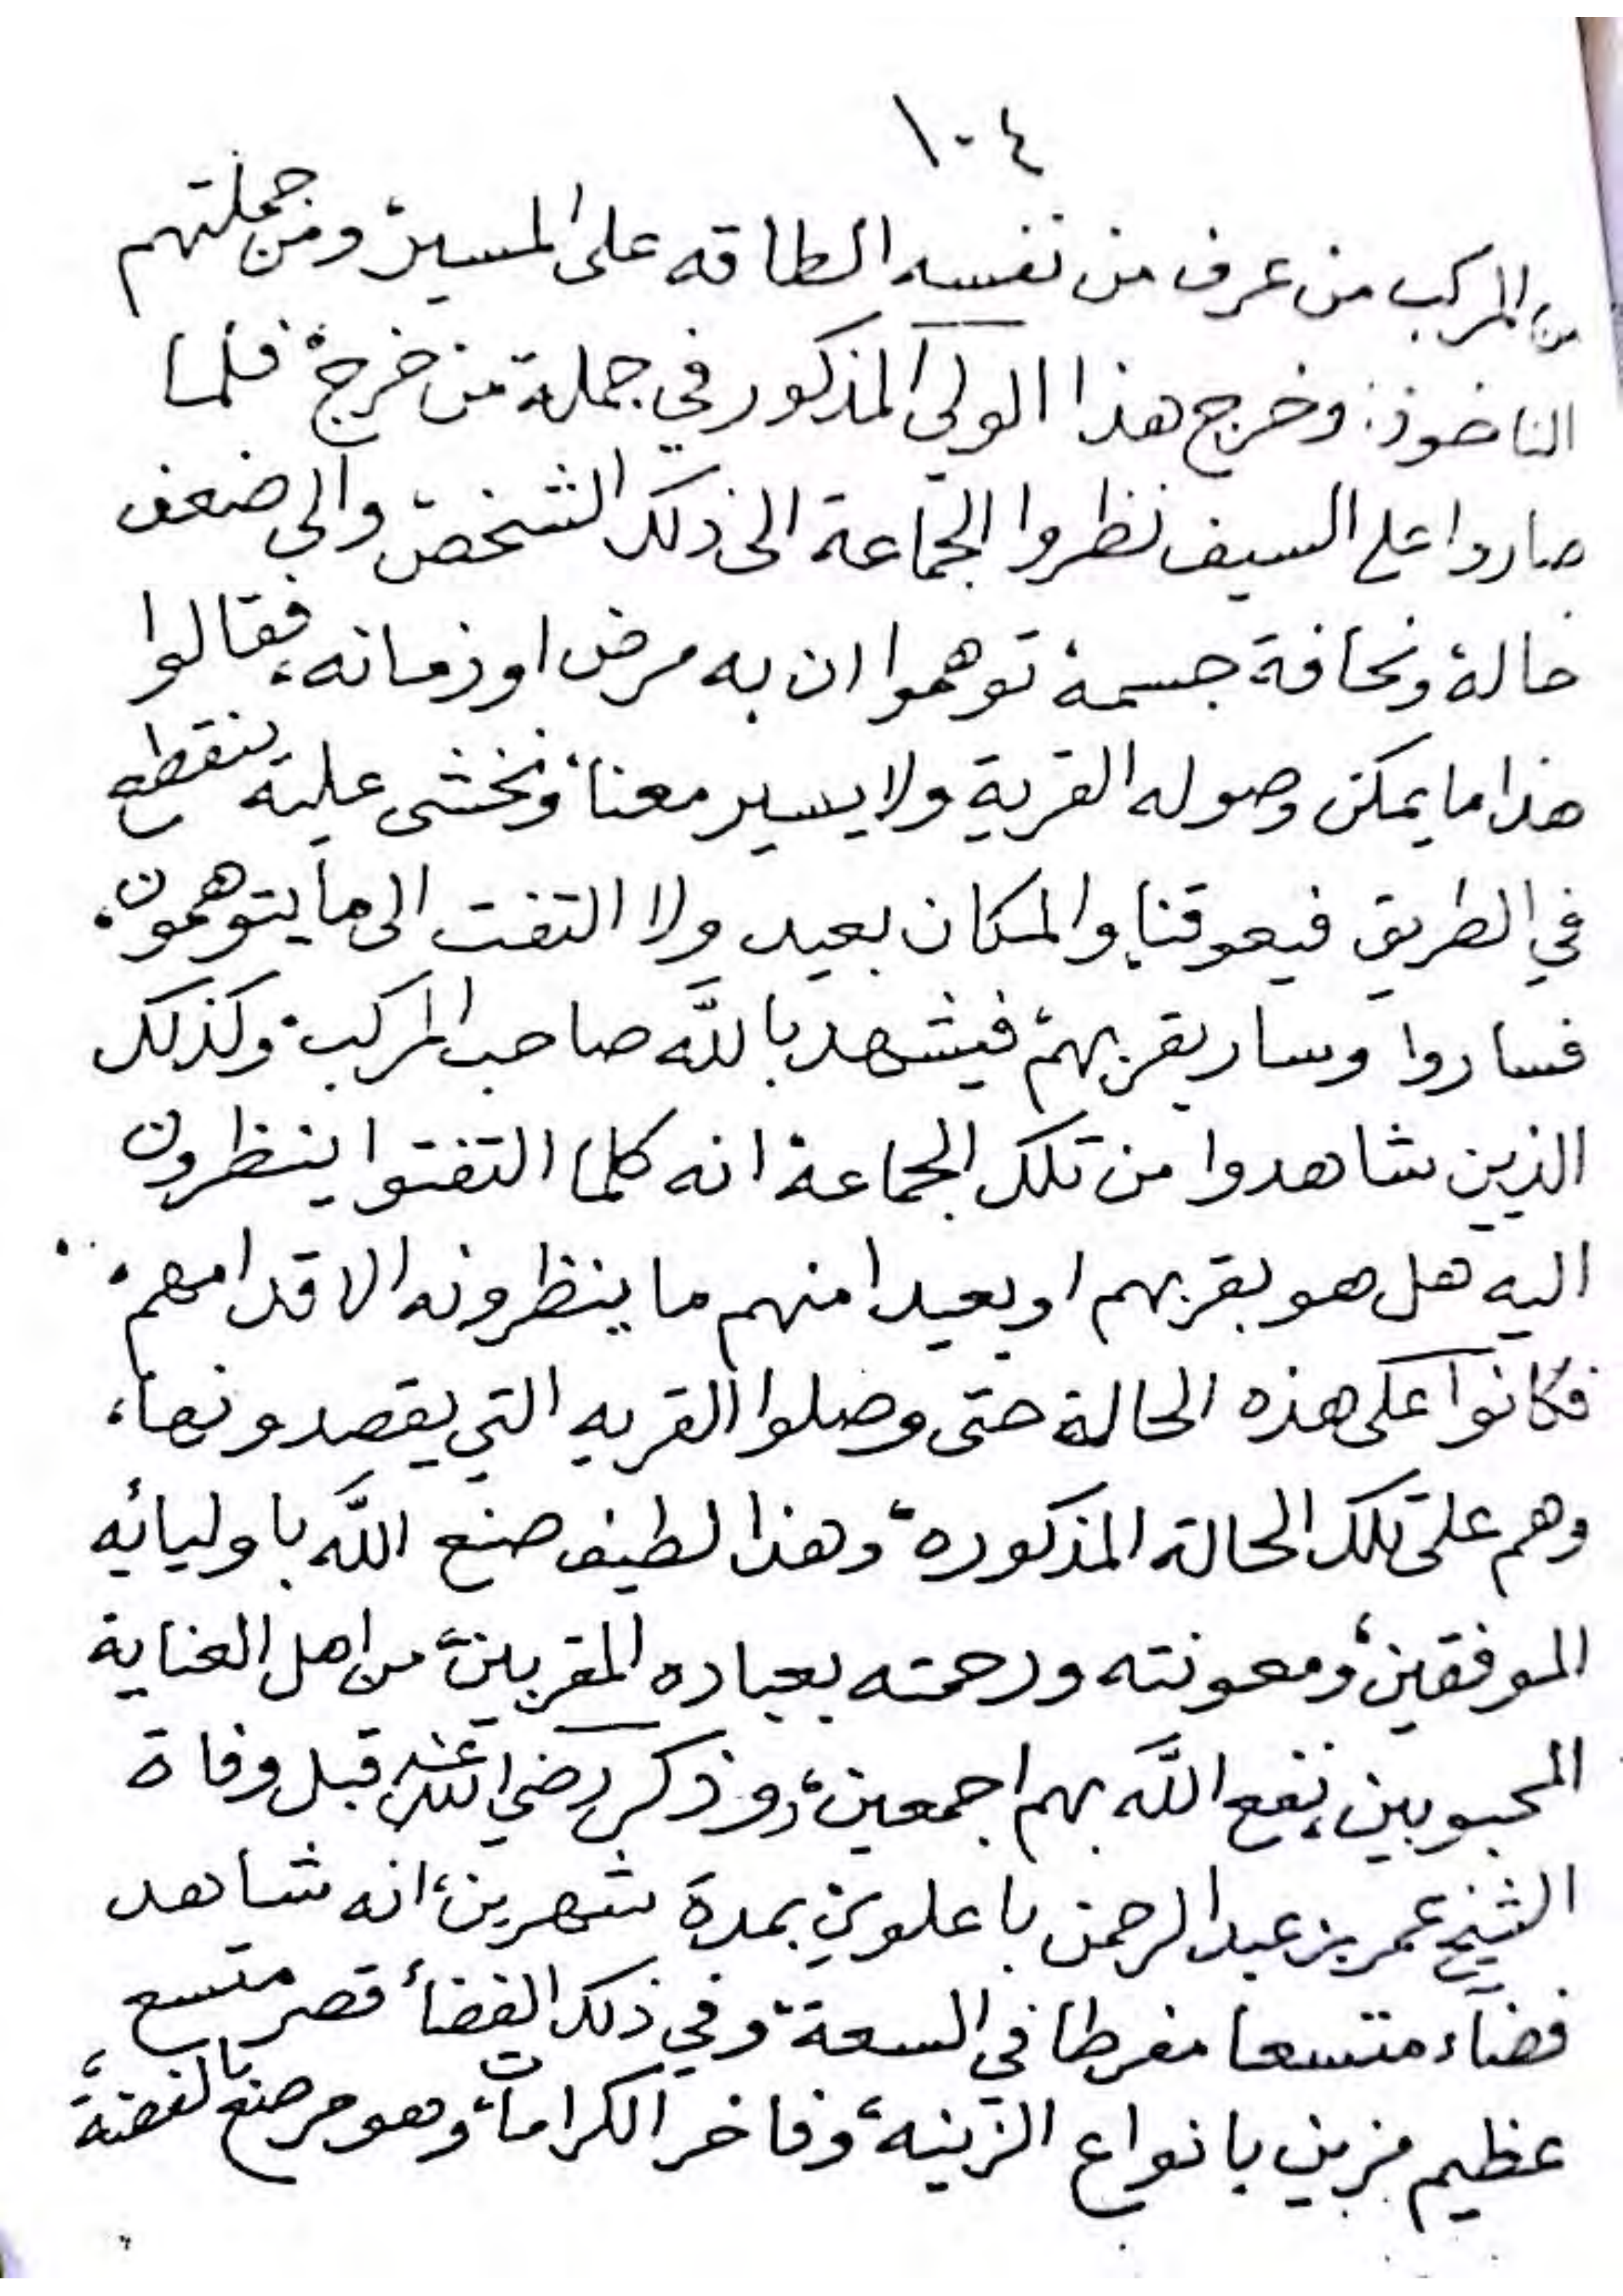 ١٠٤
من المركب من عرف من نفسه الطاقه على المسير، ومن جملتهم
الناخوذ: وخرج هذا الولي المذكور في جملة من خرج، فلما
صاروا على السيف نظروا الجماعة الى ذلك الشخص والى ضعف
حالة ونحافة جسمة توهموا ان به مرض او زمانه، فقالوا
هذا ما يمكن وصوله القرية ولا يسير معنا، ونخشى علية ينقطع
في الطريق فيعوقنا، والمكان بعيد ولا التفت الى ما يتوهمون.
فساروا وسار بقربهم، فيشهد بالله صاحب المركب. وكذلك
الذين شاهدوا من تلك الجماعة انه كلما التفتوا ينظرون
اليه هل هو بقربهم او بعيدا منهم ما ينظرونه الا قدامهم.
فكانوا على هذه الحالة حتى وصلوا القريه التي يقصدونها،
وهم على تلك الحالة المذكوره، وهذا لطيف صنع الله باوليائه
الموفقين، ومعونته ورحمته بعباده المقربين، من اهل العناية
المحبوبين، نفع الله بهم اجمعين، وذكر رضي الله عنه قبل وفاة
الشيخ عمر بن عبد الرحمن باعلوي بمدة شهرين، انه شاهد
فضاء متسعا مفرطا في السعة، وفي ذلك الفضأ قصر متسع
عظيم مزين بانواع الزينه، وفاخر الكرامات، وهو مرصع بالفضة،